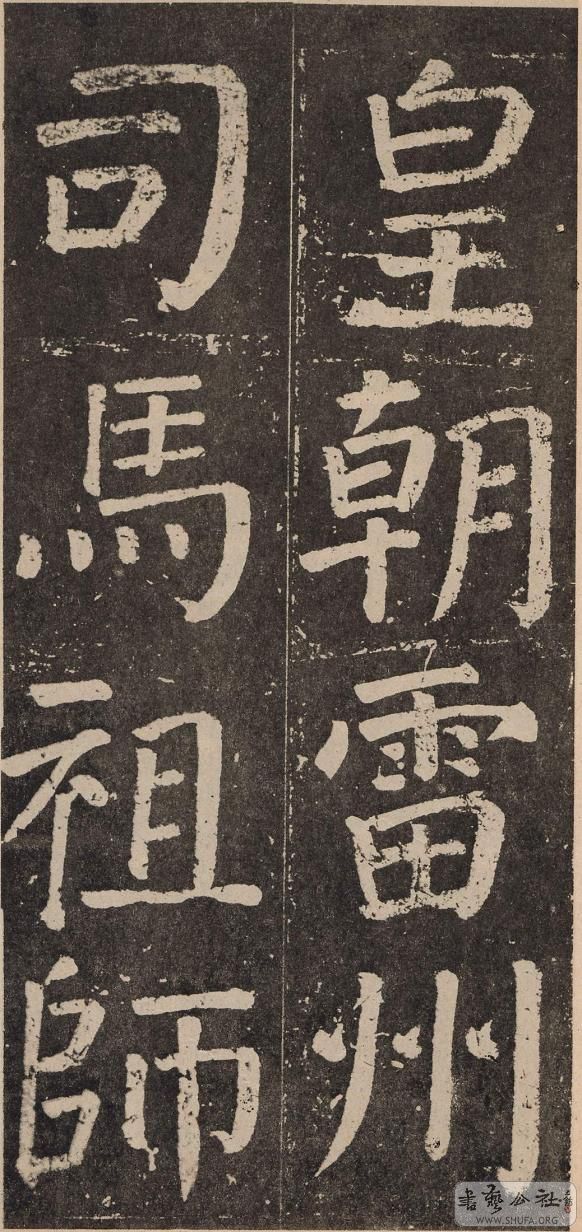 皇朝雷州
司馬祖師
書藝公社
WWW.SHUFA.ORG